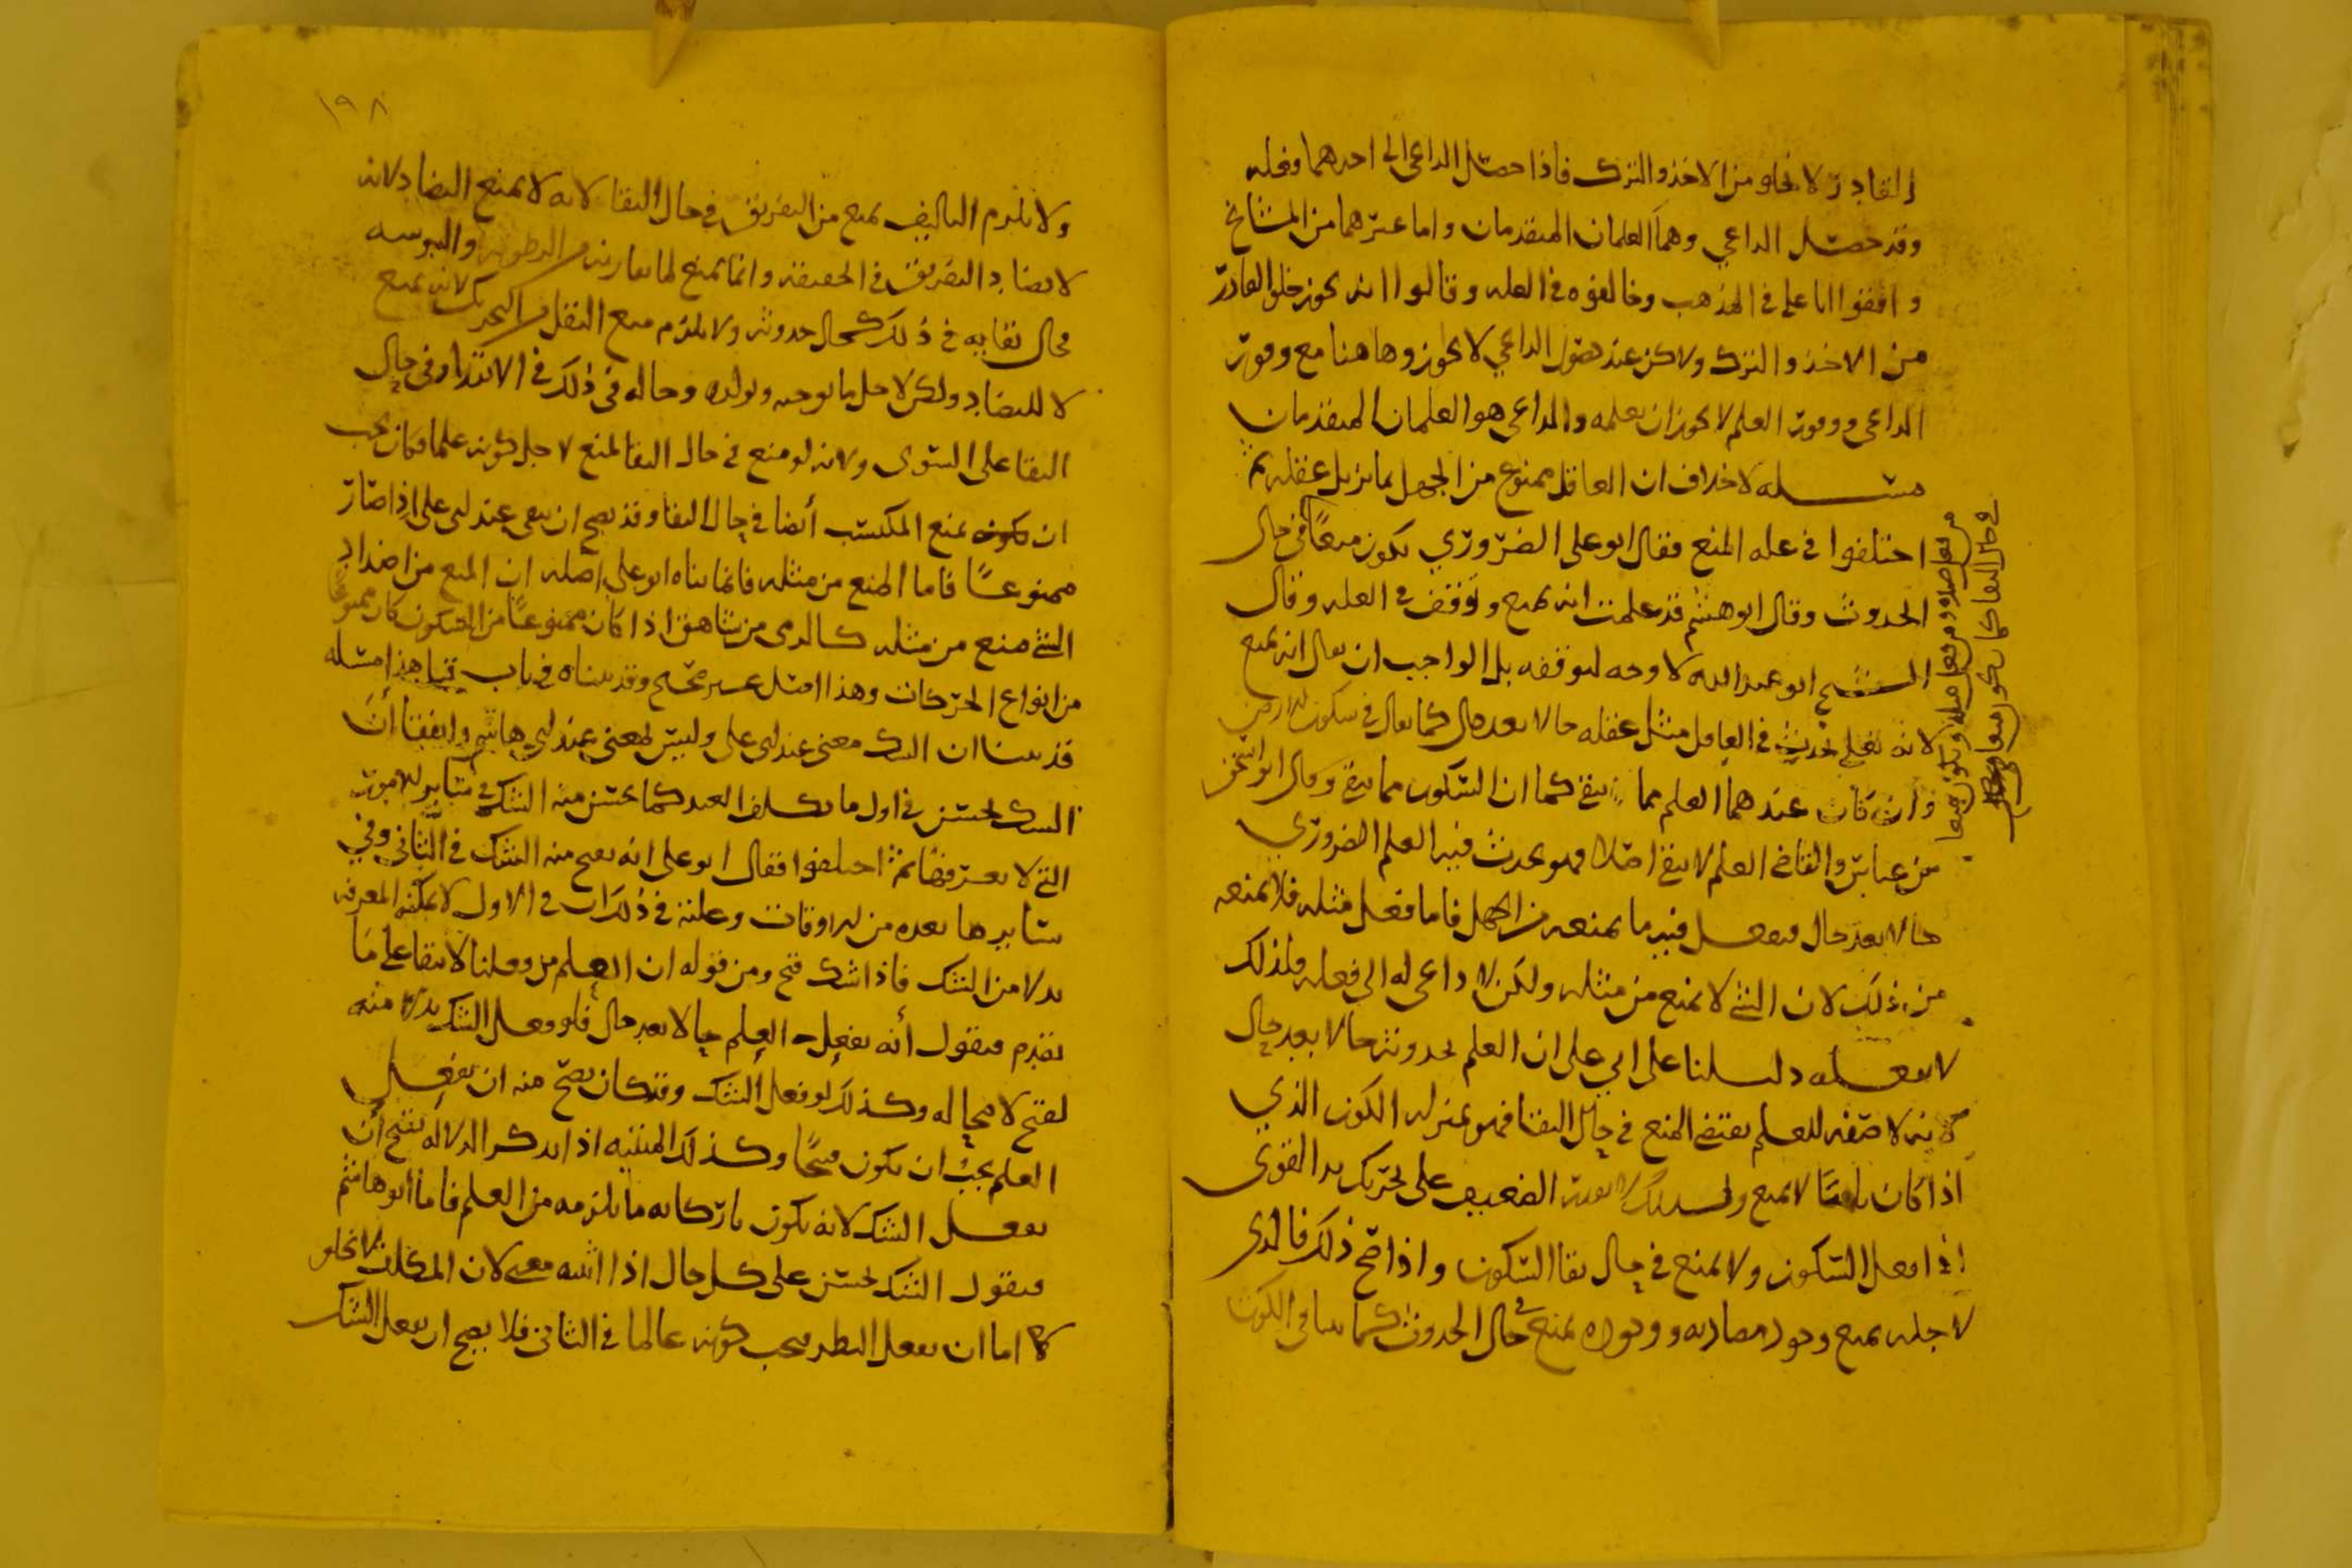 القادر لا يخلو من الاخذ والترك فاذا حصل الداعي الى احدهما وفعله
وقد حصل الداعي وهما العلمان المتقدمان واما غيرهما من المشائخ
وافقوا ابا علي في المذهب وخالفوه في العله وقالوا انه يجوز خلو القادر
من الاخذ والترك ولاكن عند حصول الداعي لا يجوز وهاهنا مع وفور
الداعي ووفور العلم لا يجوز ان يعلمه والداعي هو العلمان المتقدمان
مسله لا خلاف ان العاقل ممنوع من الجهل بما يزيل عقله ثم
اختلفوا في عله المنع فقال ابو علي الضروري يكون منعا في حال
الحدوث وقال ابو هشم قد علمت انه يمنع وتوقف في العله وقال
الشيخ ابو عبدالله لا وجه لتوقفه بل الواجب ان يقال انه يمنع
لانه يفعل يحدث في العاقل مثل عقله حالا بعد حال كما يقال في سكون الارض
وان كان عندهما العلم مما يبقى كما ان السكون مما يبقى وقال ابو اسحق
بن عياش والقاضي العلم لا يبقى اصلا فهو يحدث فيه العلم الضروري
حالا بعد حال فيفعل فيه ما يمنعه من الجهل فاما فعل مثله فلا يمنعه
من ذلك لان الشي لا يمنع من مثله ولكن لا داعي له الى فعله فلذلك
لا يفعله دليلنا على ابي علي ان العلم يحدوثه حالا بعد حال
لانه لا صفه للعلم يقتضي المنع في حال البقا فهو بمنزله الكون الذي
اذا كان باقيا لا يمنع ولذلك لا يقدر الضعيف على تحريك يد القوي
اذا فعل السكون ولا يمنع في حال بقا السكون واذا صح ذلك فالذي
لاجله يمنع وجود مضاده ووجوده يمنع في حال الحدوث كما ينافي الكون
من فعل ضده ومن فعل مثله ويكون منعا
في حال البقا كما يكون منعا في حال
١٩٨
ولا يلزم التاليف يمنع من التفريق في حال البقا لانه لا يمنع التضاد لانه
لا يضاد التفريق في الحقيقه وانما يمنع لما يقارنه من الرطوبه واليبوسه
فحال بقايه في ذلك كحال حدوثه ولا يلزم منع الثقل من التحريك لانه يمنع
لا للتضاد ولكن لاجل ما يوجبه ويولده وحاله في ذلك في الابتدا وفي حال
البقا على السوى ولانه لو منع في حال البقا لمنع لاجل كونه علما فكان يجب
ان يمنع المكتسب أيضا في حال البقا وقد يصح ان يبقى عند ابي علي اذا صار
ممنوعا فاما المنع من مثله فانما بناه ابو علي اصله ان المنع من اضداد
الشي منع من مثله كالرمي من شاهق اذا كان ممنوعا من السكون كان ممنوعا
من انواع الحركات وهذا اصل غير صحيح وقد بيناه في باب قبل هذا مسله
قد بينا ان الشك معنى عند ابي علي وليس لمعنى عند ابي هاشم واتفقا ان
الشك يحسن في اول ما يكلف العبد كما يحسن منه الشك في سائر الامور
التي لا يعرفها ثم اختلفوا فقال ابو علي انه يقبح منه الشك في الثاني وفي
سايرها بعده من الاوقات وعلته في ذلك ان في الاول لا يمكنه المعرفه
بدلا من الشك فاذا شك قبح ومن قوله ان العلم من فعلنا لا يبقا على ما
تقدم فيقول أنه يفعل العلم حالا بعد حال فلو فعل الشك بدلا منه
لقبح لا محاله وكذلك لو فعل الشك وقد كان يصح منه ان يفعل
العلم يجب ان يكون قبيحا وكذلك المنتبه اذا تذكر الدلاله يقبح ان
يفعل الشك لانه يكون تاركا به ما يلزمه من العلم فاما ابو هاشم
فيقول الشك يحسن على كل حال اذا اشبه معه لان المكلف لا يخلو
اما ان يفعل النظر فيجب كونه عالما في الثاني فلا يصح ان يفعل الشك